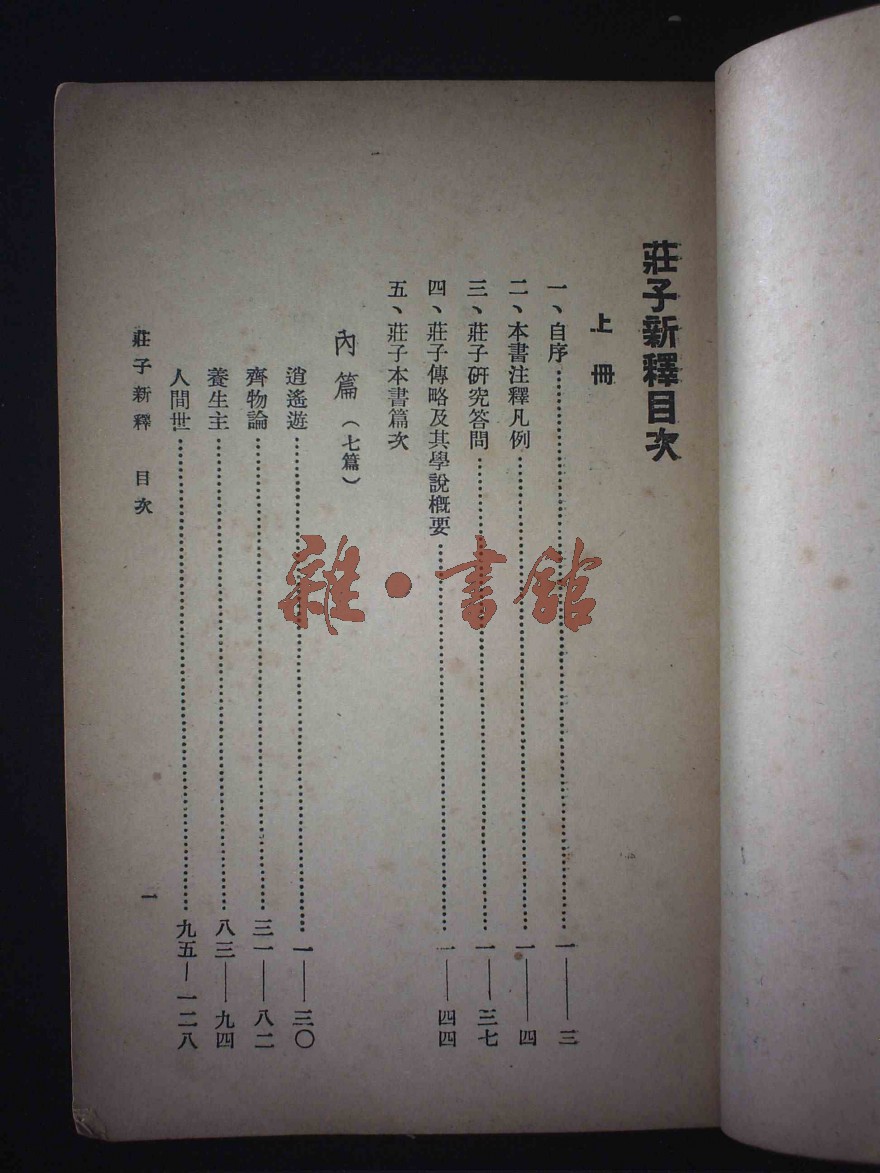 莊子新釋目次
上冊
一、自序……一——三
二、本書注釋凡例……一——四
三、莊子研究答問……一—三七
四、莊子傳略及其學說概要……一——四四
五、莊子本書篇次
內篇（七篇）
逍遙遊……一——三〇
齊物論……三一——八二
養生主……八三——九四
人間世……九五—一二八
莊子新釋 目次
一
雜·書館